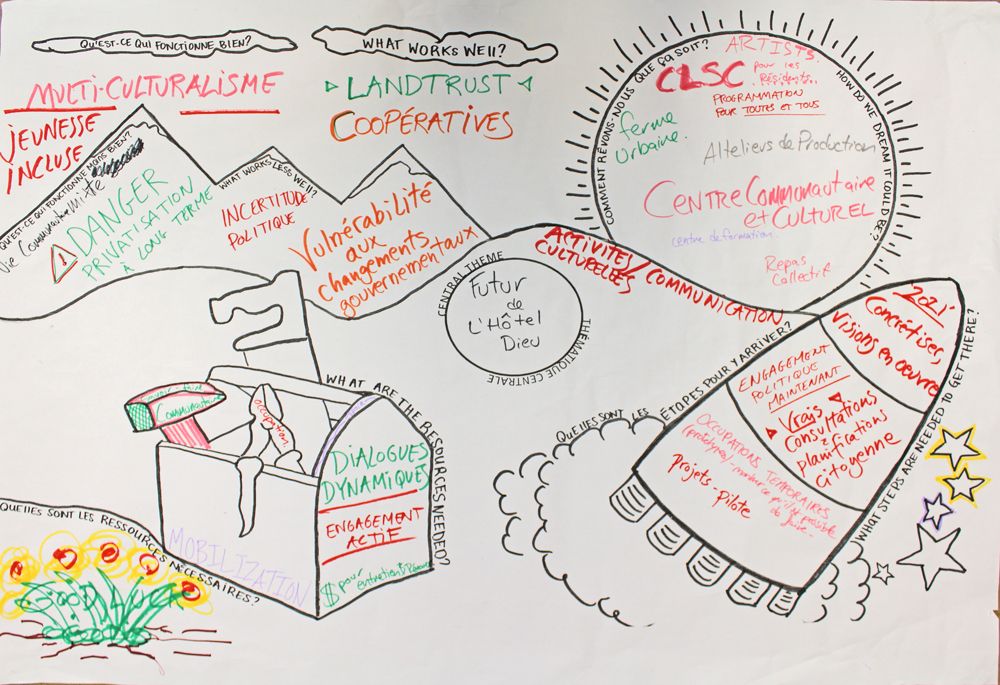 QU'EST-CE QUI FONCTIONNE BIEN?
WHAT WORKS WELL?
MULTI-CULTURALISME
JEUNESSE
INCLUSE
▷ LANDTRUST ◁
COOPÉRATIVES
QU'EST-CE QUI FONCTIONNE MOINS BIEN?
Vie Communautaire Mixte
! DANGER
PRIVATISATION
À LONG TERME
WHAT WORKS LESS WELL?
INCERTITUDE
POLITIQUE
Vulnérabilité
aux
changements
gouvernementaux
COMMENT RÊVONS-NOUS QUE ÇA SOIT?
HOW DO WE DREAM IT COULD BE?
ARTISTS
CLSC pour les
Résidents..
PROGRAMMATION
POUR TOUTES ET TOUS
ferme
Urbaine.
Alteliers de Production
CENTRE COMMUNAUTAIRE
et CULTUREL
centre de formation
Repas
Collectif
ACTIVITÉS/COMMUNICATION
CULTURELLES
CENTRAL THEME
THÉMATIQUE CENTRALE
Futur
de
L'Hôtel
Dieu
QUELLES SONT LES ÉTAPES POUR Y ARRIVER?
WHAT STEPS ARE NEEDED TO GET THERE?
2021
Concrétiser,
Visions en oeuvre
ENGAGEMENT
POLITIQUE
MAINTENANT
Vrais
Consultations
&
planifications
citoyenne
OCCUPATIONS TEMPORAIRES
(prototypes) - montrer ce qu'il est possible
de faire -
Projets-pilote
WHAT ARE THE RESOURCES NEEDED?
Savoir-faire
Communautaire
occupation
DIALOGUES
DYNAMIQUES
ENGAGEMENT
ACTIF
$ pour
entretien &
MOBILIZATION
QUELLES SONT LES RESSOURCES NÉCESSAIRES?
GOOD LUCK